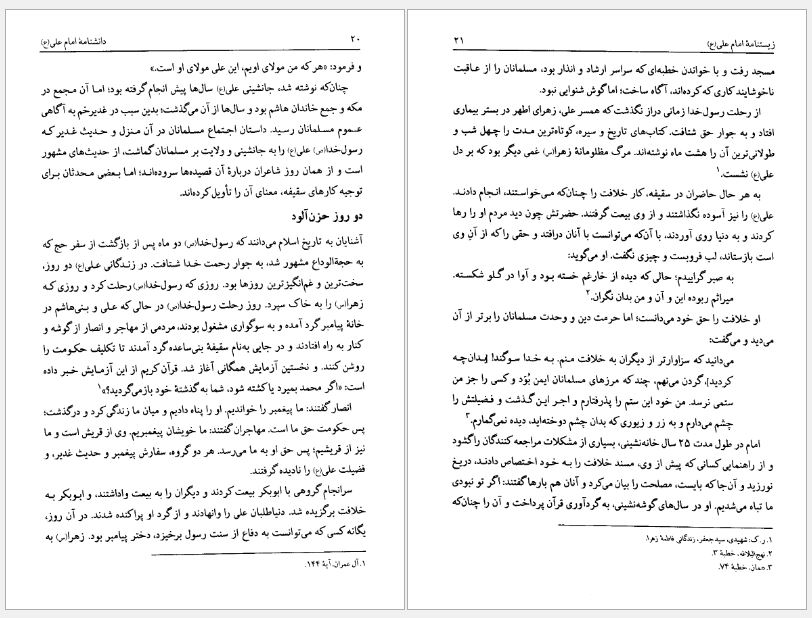 ۲۰ دانشنامهٔ امام علی(ع)
و فرمود: «هر که من مولای اویم، این علی مولای او است.»
چنان‌که نوشته شد، جانشینی علی(ع) سال‌ها پیش انجام گرفته بود؛ اما آن مجمع در
مکه و جمع خاندان هاشم بود و سال‌ها از آن می‌گذشت؛ بدین سبب در غدیرخم به آگاهی
عموم مسلمانان رسید. داستان اجتماع مسلمانان در آن منزل و حدیث غدیر که
رسول‌خدا(ص) علی(ع) را به جانشینی و ولایت بر مسلمانان گماشت، از حدیث‌های مشهور
است و از همان روز شاعران دربارهٔ آن قصیده‌ها سروده‌اند؛ اما بعضی محدثان برای
توجیه کارهای سقیفه، معنای آن را تأویل کرده‌اند.
دو روز حزن‌آلود
آشنایان به تاریخ اسلام می‌دانند که رسول‌خدا(ص) دو ماه پس از بازگشت از سفر حج که
به حجة‌الوداع مشهور شد، به جوار رحمت خدا شتافت. در زندگانی علی(ع) دو روز،
سخت‌ترین و غم‌انگیزترین روزها بود. روزی که رسول‌خدا(ص) رحلت کرد و روزی که
زهرا(س) را به خاک سپرد. روز رحلت رسول‌خدا(ص) در حالی که علی و بنی‌هاشم در
خانهٔ پیامبر گرد آمده و به سوگواری مشغول بودند، مردمی از مهاجر و انصار از گوشه و
کنار به راه افتادند و در جایی به‌نام سقیفهٔ بنی‌ساعده گرد آمدند تا تکلیف حکومت را
روشن کنند. و نخستین آزمایش همگانی آغاز شد. قرآن کریم از این آزمایش خبر داده
است: «اگر محمد بمیرد یا کشته شود، شما به گذشتهٔ خود بازمی‌گردید؟»۱
انصار گفتند: ما پیغمبر را خواندیم. او را پناه دادیم و میان ما زندگی کرد و درگذشت؛
پس حکومت حق ما است. مهاجران گفتند: ما خویشان پیغمبریم. وی از قریش است و ما
نیز از قریشیم؛ پس حق او به ما می‌رسد. هر دو گروه، سفارش پیغمبر و حدیث غدیر، و
فضیلت علی(ع) را نادیده گرفتند.
سرانجام گروهی با ابوبکر بیعت کردند و دیگران را به بیعت واداشتند، و ابوبکر به
خلافت برگزیده شد. دنیاطلبان علی را وانهادند و از گرد او پراکنده شدند. در آن روز،
یگانه کسی که می‌توانست به دفاع از سنت رسول برخیزد، دختر پیامبر بود. زهرا(س) به
۱. آل عمران، آیهٔ ۱۴۴.
زیستنامهٔ امام علی(ع) ۲۱
مسجد رفت و با خواندن خطبه‌ای که سراسر ارشاد و انذار بود، مسلمانان را از عاقبت
ناخوشایند کاری که کرده‌اند، آگاه ساخت؛ اما گوش شنوایی نبود.
از رحلت رسول‌خدا زمانی دراز نگذشت که همسر علی، زهرای اطهر در بستر بیماری
افتاد و به جوار حق شتافت. کتاب‌های تاریخ و سیره، کوتاه‌ترین مدت را چهل شب و
طولانی‌ترین آن را هشت ماه نوشته‌اند. مرگ مظلومانهٔ زهرا(س) غمی دیگر بود که بر دل
علی(ع) نشست.۱
به هر حال حاضران در سقیفه، کار خلافت را چنان‌که می‌خواستند، انجام دادند.
علی(ع) را نیز آسوده نگذاشتند و از وی بیعت گرفتند. حضرتش چون دید مردم او را رها
کردند و به دنیا روی آوردند، با آن‌که می‌توانست با آنان درافتد و حقی را که از آنِ وی
است بازستاند، لب فروبست و چیزی نگفت. او می‌گوید:
به صبر گراییدم؛ حالی که دیده از خار غم خسته بود و آوا در گلو شکسته.
میراثم ربوده این و آن و من بدان نگران.۲
او خلافت را حق خود می‌دانست؛ اما حرمت دین و وحدت مسلمانان را برتر از آن
می‌دید و می‌گفت:
می‌دانید که سزاوارتر از دیگران به خلافت منم. به خدا سوگند! [بدان‌چه
کردید]، گردن می‌نهم، چند که مرزهای مسلمانان ایمن بُوَد و کسی را جز من
ستمی نرسد. من خود این ستم را پذرفتارم و اجر این گذشت و فضیلتش را
چشم می‌دارم و به زر و زیوری که بدان چشم دوخته‌اید، دیده نمی‌گمارم.۳
امام در طول مدت ۲۵ سال خانه‌نشینی، بسیاری از مشکلات مراجعه کنندگان را گشود
و از راهنمایی کسانی که پیش از وی، مسند خلافت را به خود اختصاص دادند، دریغ
نورزید و آن‌جا که بایست، مصلحت را بیان می‌کرد و آنان هم بارها گفتند: اگر تو نبودی
ما تباه می‌شدیم. او در سال‌های گوشه‌نشینی، به گردآوری قرآن پرداخت و آن را چنان‌که
۱. ر. ک: شهیدی، سید جعفر، زندگانی فاطمهٔ زهرا.
۲. نهج‌البلاغه، خطبهٔ ۳.
۳. همان، خطبهٔ ۷۴.